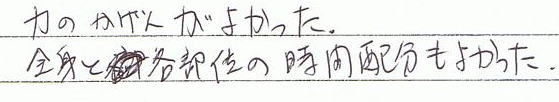 力の かげんが よかった.
全身と各部位の 時間配分もよかった.